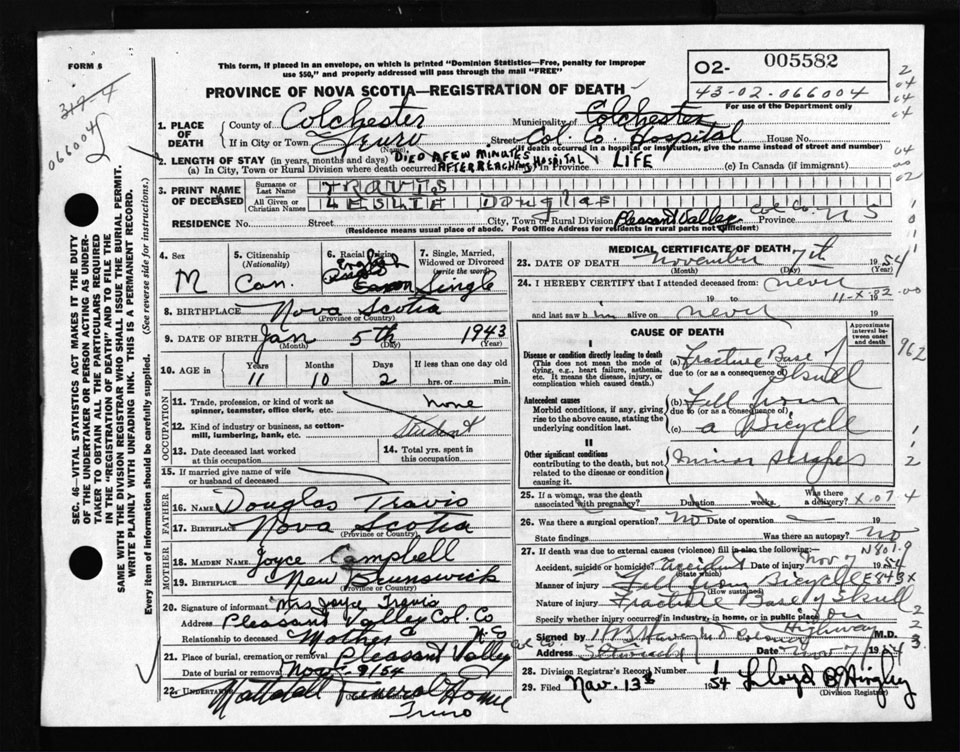 FORM 5
This form, if placed in an envelope, on which is printed "Dominion Statistics—Free, penalty for improper
use $50," and properly addressed will pass through the mail "FREE"
O2- 005582
43-02-066004
For use of the Department only
PROVINCE OF NOVA SCOTIA—REGISTRATION OF DEATH
317-4
066004
1. PLACE OF DEATH
County of Colchester Municipality of Colchester
If in City or Town Truro Street Col. Co. Hospital House No.
(Name) (If death occurred in a hospital or institution, give the name instead of street and number)
2. LENGTH OF STAY (in years, months and days) DIED A FEW MINUTES
(a) In City, Town or Rural Division where death occurred AFTER REACHING HOSPITAL (b) In Province LIFE (c) In Canada (if immigrant)
3. PRINT NAME OF DECEASED
Surname or Last Name TRAVIS
All Given or Christian Names LESLIE DOUGLAS
RESIDENCE No. Street City, Town or Rural Division Pleasant Valley Col. Co. Province N S
(Residence means usual place of abode. Post Office Address for residents in rural parts not sufficient)
4. Sex M
5. Citizenship (Nationality) Can.
6. Racial Origin English
7. Single, Married, Widowed or Divorced (write the word) Single
8. BIRTHPLACE Nova Scotia
(Province or Country)
9. DATE OF BIRTH Jan 5th 1943
(Month) (Day) (Year)
10. AGE in Years 11 Months 10 Days 2 If less than one day old hrs. or min.
OCCUPATION
11. Trade, profession, or kind of work as spinner, teamster, office clerk, etc. none
12. Kind of industry or business, as cotton-mill, lumbering, bank, etc. Student
13. Date deceased last worked at this occupation
14. Total yrs. spent in this occupation
15. If married give name of wife or husband of deceased
FATHER
16. NAME Douglas Travis
17. BIRTHPLACE Nova Scotia
(Province or Country)
MOTHER
18. MAIDEN NAME Joyce Campbell
19. BIRTHPLACE New Brunswick
(Province or Country)
20. Signature of informant Mrs Joyce Travis
Address Pleasant Valley Col. Co
Relationship to deceased Mother N.S
21. Place of burial, cremation or removal Pleasant Valley Col Co
Date of burial or removal Nov 9/54
22. UNDERTAKER Mattatall Funeral Home
Truro
MEDICAL CERTIFICATE OF DEATH
23. DATE OF DEATH November 7th 1954
(Month) (Day) (Year)
24. I HEREBY CERTIFY that I attended deceased from never
19 to 19
11-X-02.00
and last saw him alive on never 19
CAUSE OF DEATH
Approximate interval between onset and death
I
Disease or condition directly leading to death
(This does not mean the mode of dying, e.g., heart failure, asthenia, etc. It means the disease, injury, or complication which caused death.)
(a) Fracture Base of Skull
due to (or as a consequence of)
962
Antecedent causes
Morbid conditions, if any, giving rise to the above cause, stating the underlying condition last.
(b) Fell from
due to (or as a consequence of)
(c) a Bicycle
II
Other significant conditions
contributing to the death, but not related to the disease or condition causing it.
minor scrapes
25. If a woman, was the death associated with pregnancy? Duration weeks. Was there a delivery?
X.07 4
26. Was there a surgical operation? No Date of operation 19
State findings Was there an autopsy? No
27. If death was due to external causes (violence) fill in also the following:—
N801.9
Accident, suicide or homicide? Accident Nov 7 1954
(State which)
Manner of injury Fell from Bicycle E843X
(How sustained)
Nature of injury Fracture Base of Skull
Specify whether injury occurred in industry, in home, or in public place on Highway
Signed by M.D.
Address Date Nov 7/54
28. Division Registrar's Record Number
29. Filed Nov. 13th 1954 Lloyd B.
(Division Registrar)
SEC. 46—VITAL STATISTICS ACT MAKES IT THE DUTY
OF THE UNDERTAKER OR PERSON ACTING AS UNDER-
TAKER TO OBTAIN ALL THE PARTICULARS REQUIRED
IN THE "REGISTRATION OF DEATH" AND TO FILE THE
SAME WITH THE DIVISION REGISTRAR WHO SHALL ISSUE THE BURIAL PERMIT.
WRITE PLAINLY WITH UNFADING INK. THIS IS A PERMANENT RECORD.
Every item of information should be carefully supplied. (See reverse side for instructions.)